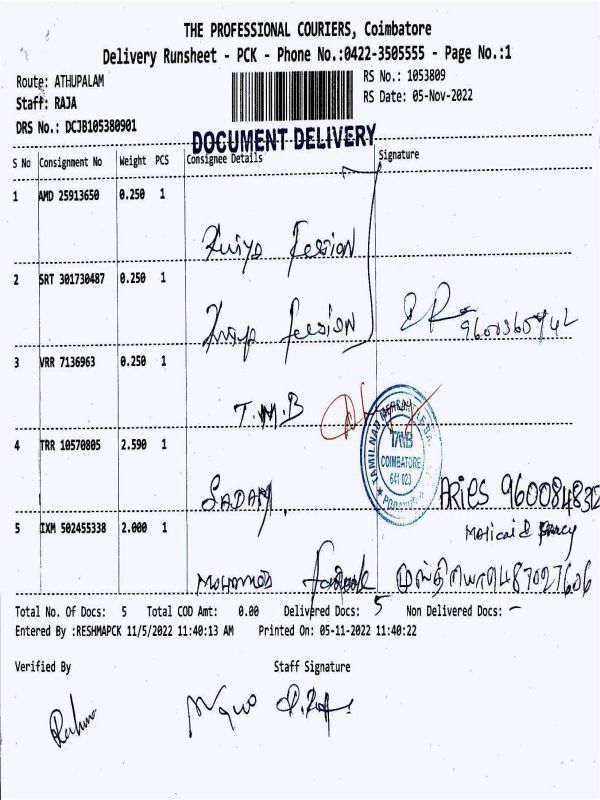 THE PROFESSIONAL COURIERS, Coimbatore
Delivery Runsheet - PCK - Phone No.:0422-3505555 - Page No.:1
Route: ATHUPALAM
RS No.: 1053809
Staff: RAJA
RS Date: 05-Nov-2022
DRS No.: DCJB105380901
DOCUMENT DELIVERY
S No Consignment No Weight PCS Consignee Details Signature
1 AMD 25913650 0.250 1
2 SRT 301730487 0.250 1
9600365942
3 VRR 7136963 0.250 1
T.M.B
TAMILNAD MERCANTILE
TMB
COIMBATORE
641 023
4 TRR 10570805 2.590 1
SADAM.
ARIES
5 IXM 502455338 2.000 1
MOHAMED
9487027606
Total No. Of Docs: 5 Total COD Amt: 0.00 Delivered Docs: 5 Non Delivered Docs: -
Entered By :RESHMAPCK 11/5/2022 11:40:13 AM Printed On: 05-11-2022 11:40:22
Verified By Staff Signature